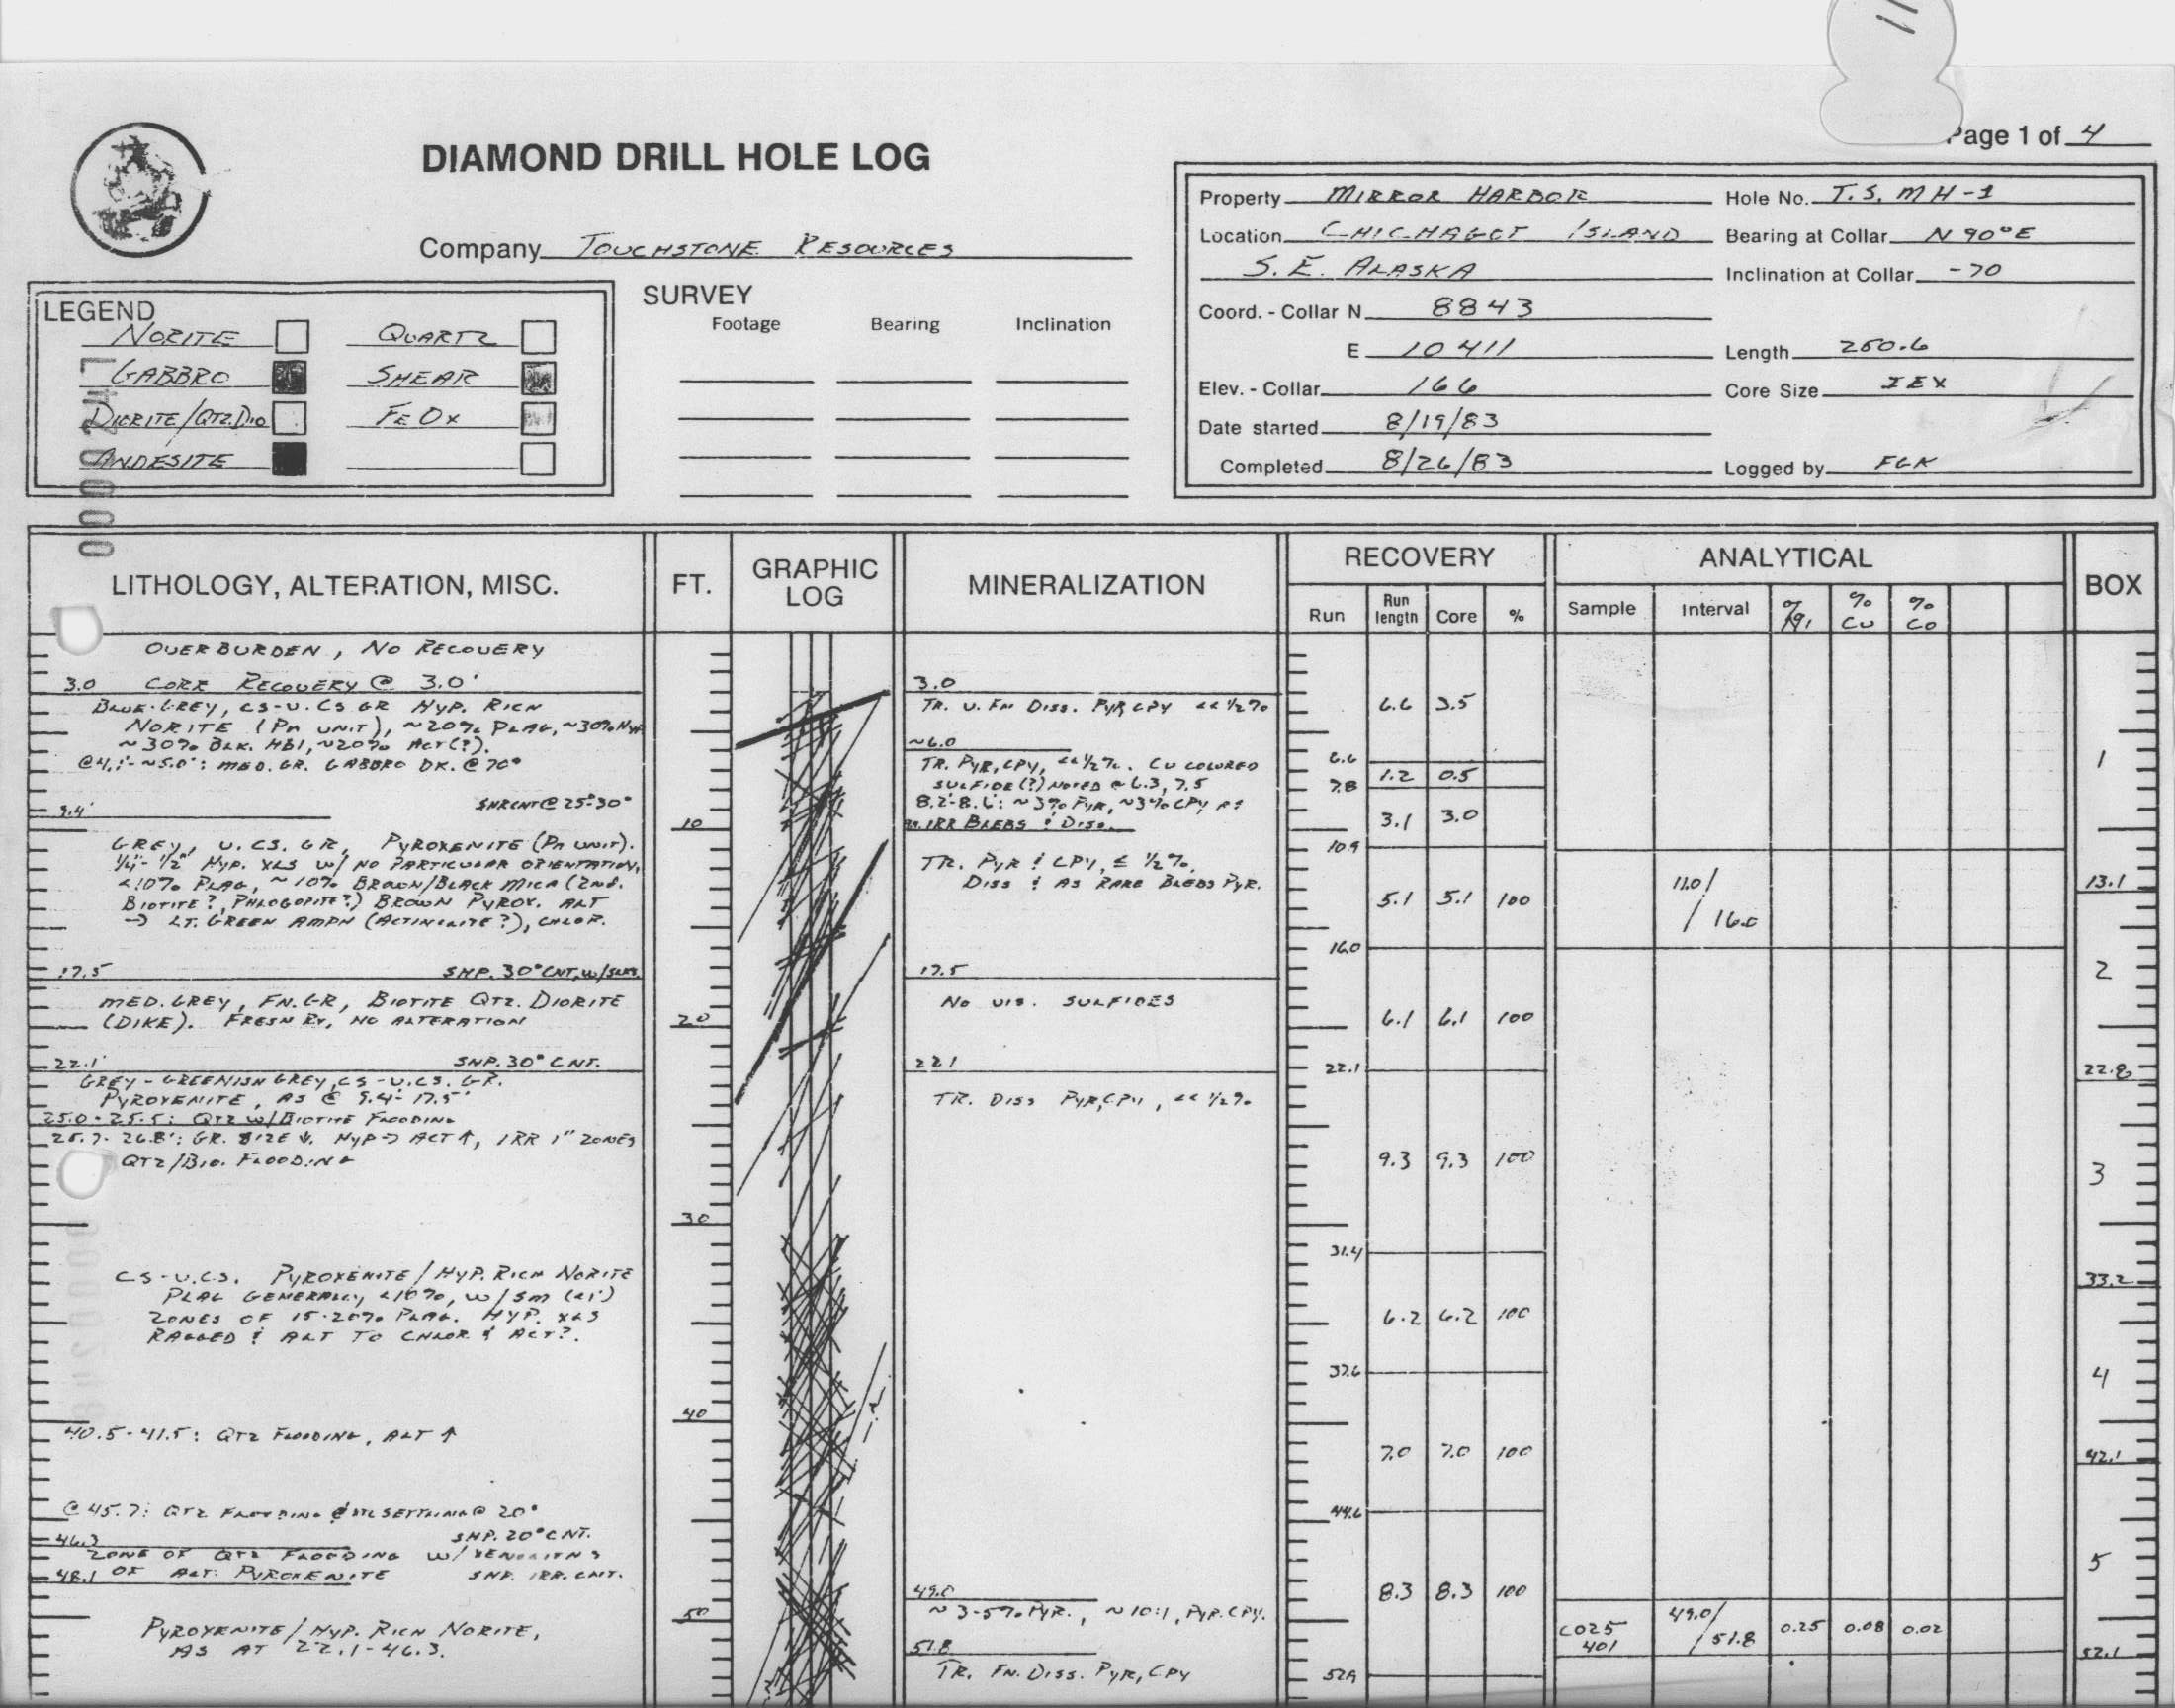 Page 1 of 4
DIAMOND DRILL HOLE LOG
Company TOUCHSTONE RESOURCES
Property MIRROR HARBOR
Hole No. T.S. MH-1
Location CHICHAGOF ISLAND
Bearing at Collar N 90°E
S.E. ALASKA
Inclination at Collar -70
Coord. - Collar N 8843
E 10411
Length 250.6
Elev. - Collar 166
Core Size IEX
Date started 8/19/83
Completed 8/26/83
Logged by FGK
LEGEND
NORITE QUARTZ
GABBRO SHEAR
DIORITE/QTZ.DIO FEOX
ANDESITE
SURVEY
Footage Bearing Inclination
LITHOLOGY, ALTERATION, MISC.
OVERBURDEN, NO RECOVERY
3.0 CORE RECOVERY @ 3.0'
BLUE-GREY, CS-V.CS GR HYP. RICH
NORITE (PN UNIT), ~20% PLAG, ~30% HYP
~30% BLK. HBL, ~20% ACT(?).
@4.1'-~5.0': MED. GR. GABBRO DK. @ 70°
9.4' SHRCNT @ 25°-30°
GREY, V. CS. GR, PYROXENITE (PN UNIT).
1/4"-1/2" HYP. XLS W/ NO PARTICULAR ORIENTATION,
<10% PLAG, ~10% BROWN/BLACK MICA (2ND.
BIOTITE?, PHLOGOPITE?) BROWN PYROX. ALT
→ LT. GREEN AMPH (ACTINOLITE?), CHLOR.
17.5 SHP. 30° CNT. W/
MED. GREY, FN. GR, BIOTITE QTZ. DIORITE
(DIKE). FRESH RX, NO ALTERATION
22.1' SHP. 30° CNT.
GREY-GREENISH GREY, CS-V.CS. GR.
PYROXENITE, AS @ 9.4-17.5'
25.0-25.5: QTZ W/BIOTITE FLOODING
25.7-26.8': GR. SIZE ↓, HYP→ACT↑, IRR 1" ZONES
QTZ/BIO. FLOODING
CS-V.CS. PYROXENITE/HYP. RICH NORITE
PLAG GENERALLY <10%, W/SM (<1')
ZONES OF 15-20% PLAG. HYP. XLS
RAGGED & ALT TO CHLOR & ACT?.
40.5-41.5: QTZ FLOODING, ALT ↑
@ 45.7: QTZ FLOODING @ 20°
46.3 SHP. 20° CNT.
ZONE OF QTZ FLOODING W/ XENOLITHS
48.1 OF ALT. PYROXENITE SHP. IRR. CNT.
PYROXENITE/HYP. RICH NORITE,
AS AT 22.1-46.3.
FT.
10
20
30
40
50
GRAPHIC
LOG
MINERALIZATION
3.0
TR. V. FN DISS. PYR, CPY << 1/2%
~6.0
TR. PYR, CPY, << 1/2%. CU COLORED
SULFIDE(?) NOTED @ 6.3, 7.5
8.2-8.6: ~3% PYR, ~3% CPY AS
IRR BLEBS & DISS.
TR. PYR & CPY, ≤ 1/2%
DISS & AS RARE BLEBS PYR.
17.5
NO VIS. SULFIDES
22.1
TR. DISS PYR, CPY, << 1/2%
49.0
~3-5% PYR., ~10:1, PYR. CPY.
51.8
TR. FN. DISS. PYR, CPY
RECOVERY
Run Run length Core %
6.6 3.5
6.6
1.2 0.5
7.8
3.1 3.0
10.9
5.1 5.1 100
16.0
6.1 6.1 100
22.1
9.3 9.3 100
31.4
6.2 6.2 100
37.6
7.0 7.0 100
44.6
8.3 8.3 100
52.9
ANALYTICAL
Sample Interval % Ni % Cu % Co
11.0/
/16.0
C025 49.0/
401 /51.8 0.25 0.08 0.02
BOX
1
13.1
2
22.8
3
33.2
4
42.1
5
52.1